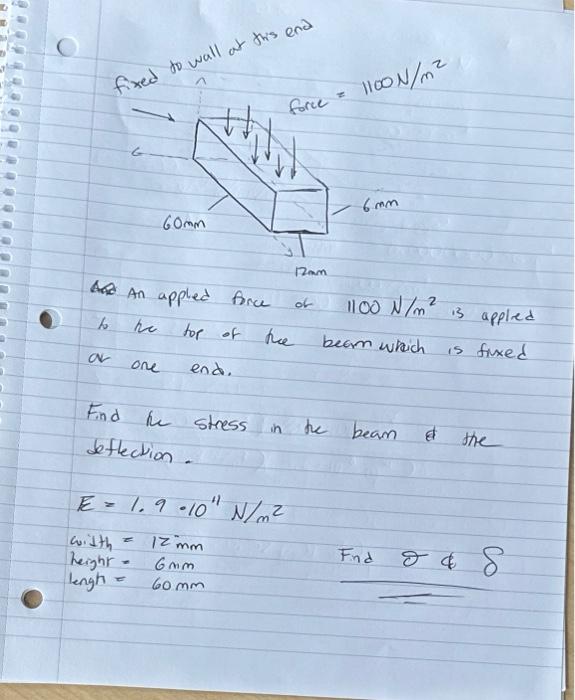 fixed to wall at this end
force = 1100 N/m²
6 mm
60mm
12mm
An appled force of 1100 N/m² is appled
to the top of the beam which is fixed
at one end.
Find the stress in the beam & the
deflection.
E = 1.9 • 10¹¹ N/m²
width = 12 mm
height = 6mm
lengh = 60 mm
Find σ & δ